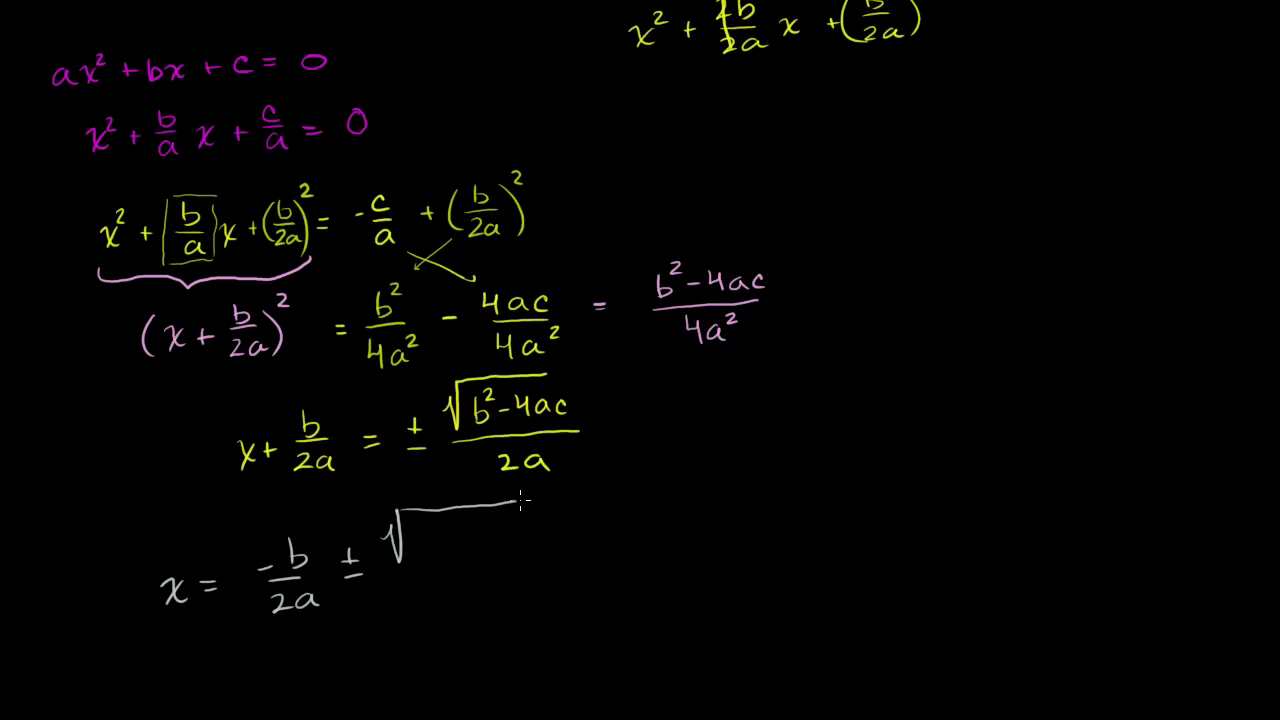 x² + 2b/2a x + (b/2a)
ax² + bx + c = 0
x² + b/a x + c/a = 0
x² + b/a x + (b/2a)² = -c/a + (b/2a)²
(x + b/2a)² = b²/4a² - 4ac/4a² = b²-4ac/4a²
x + b/2a = ± √b²-4ac/2a
x = -b/2a ± √